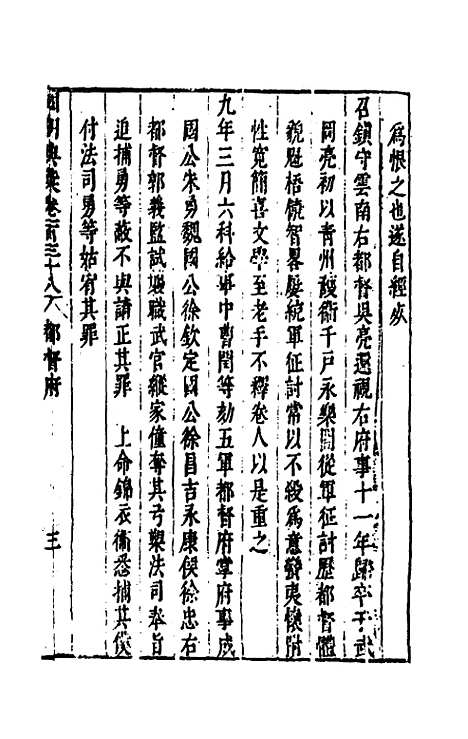 為恨之也遂自經歿
召鎮守雲南右都督吳亮還視右府事十一年歸卒于武
岡亮初以青州護衛千戶永樂間從軍征討歷都督體
貌魁梧饒智畧屢統軍征討常以不殺為意蠻夷懷附
性寬簡喜文學至老手不釋卷人以是重之
九年三月六科給事中曹閏等劾五軍都督府掌府事成
國公朱勇魏國公徐欽定國公徐昌吉永康侯徐忠右
都督郭義監試襲職武官縱家僮奪其弓槊法司奉旨
追捕勇等故不與請正其罪 上命錦衣衛悉捕其僕
付法司勇等姑宥其罪
國朝典彙卷一百三十八 都督府 三